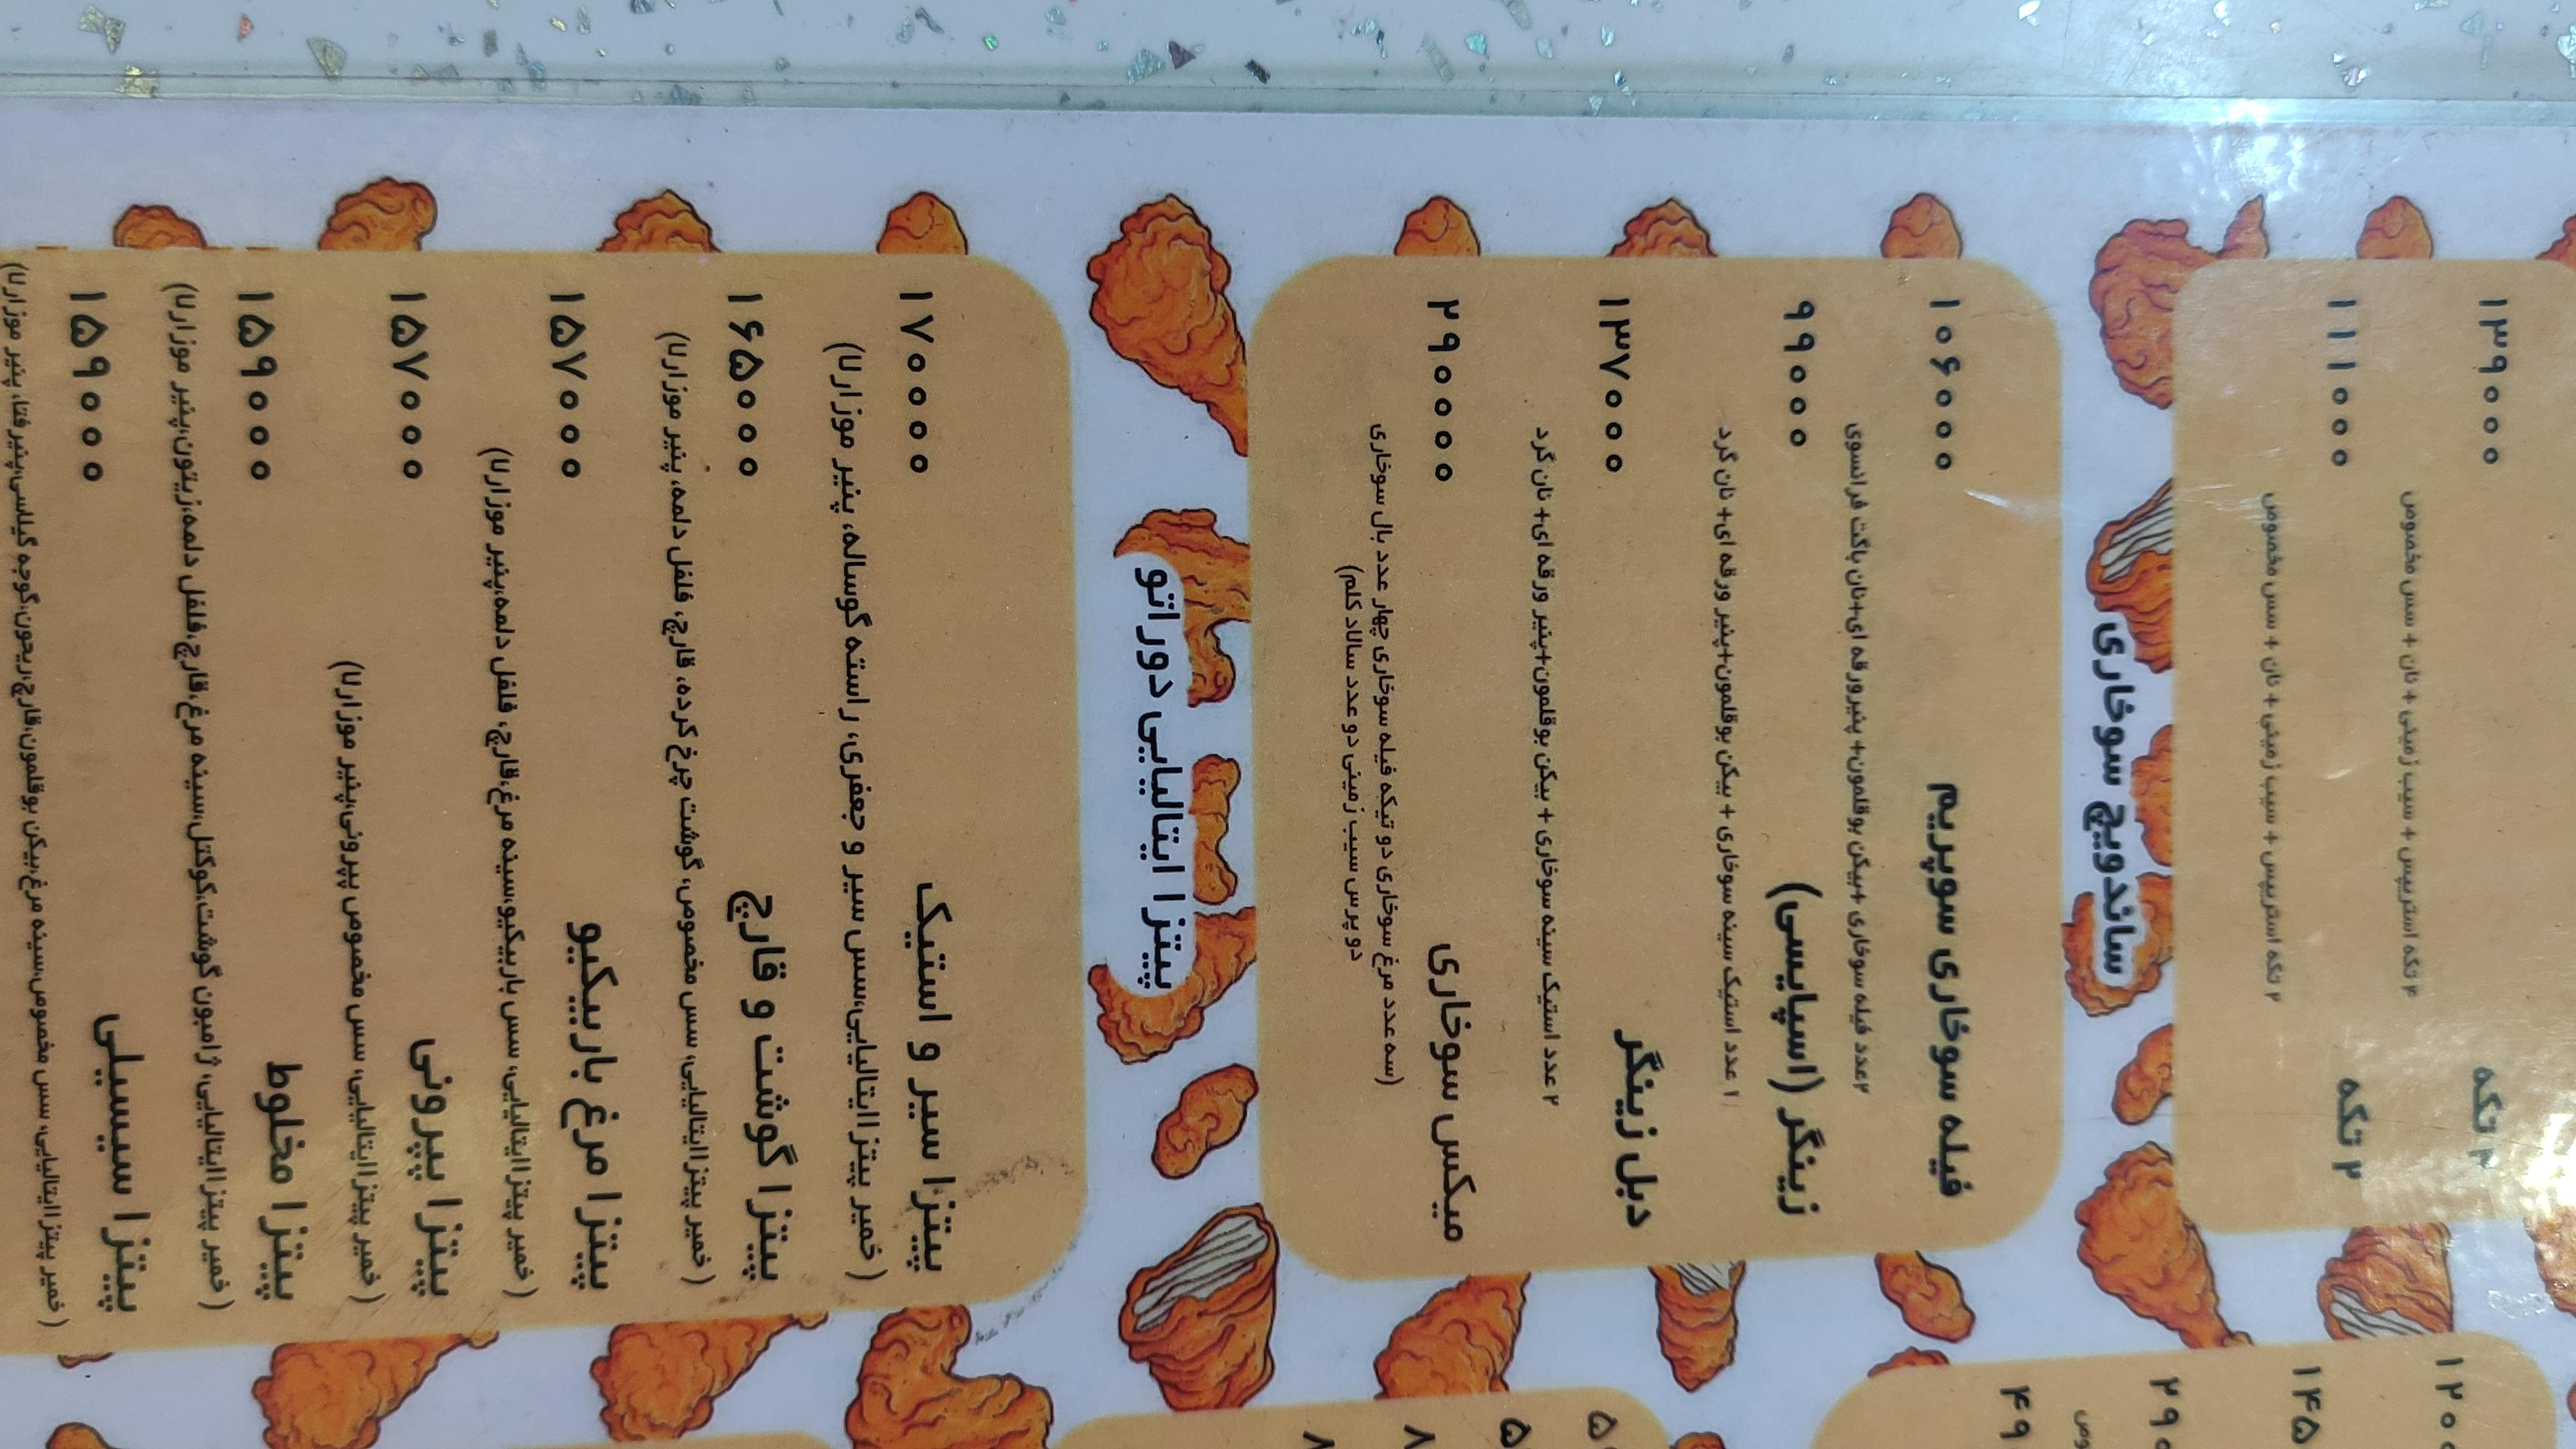 ۱۳۹۰۰۰
۴ تکه
۴ تکه استریپس + سیب زمینی + نان + سس مخصوص
۱۱۱۰۰۰
۲ تکه
۲ تکه استریپس + سیب زمینی + نان + سس مخصوص
ساندویچ سوخاری
فیله سوخاری سوپریم ۱۰۶۰۰۰
۲عدد فیله سوخاری +بیکن بوقلمون+ پنیرورقه ای+نان باگت فرانسوی
زینگر (اسپایسی) ۹۹۰۰۰
۱ عدد استیک سینه سوخاری + بیکن بوقلمون+پنیر ورقه ای+ نان گرد
دبل زینگر ۱۳۷۰۰۰
۲ عدد استیک سینه سوخاری + بیکن بوقلمون+پنیر ورقه ای+ نان گرد
میکس سوخاری ۲۹۰۰۰۰
(سه عدد مرغ سوخاری دو تیکه فیله سوخاری چهار عدد بال سوخاری
دو پرس سیب زمینی دو عدد سالاد کلم)
پیتزا ایتالیایی دوراتو
پیتزا سیر و استیک ۱۷۰۰۰۰
( خمیر پیتزا ایتالیایی،سس سیر و جعفری، راسته گوساله، پنیر موزارلا)
پیتزا گوشت و قارچ ۱۶۵۰۰۰
( خمیر پیتزا ایتالیایی، سس مخصوص، گوشت چرخ کرده، قارچ، فلفل دلمه، پنیر موزارلا)
پیتزا مرغ باربیکیو ۱۵۷۰۰۰
( خمیر پیتزا ایتالیایی، سس باربیکیو،سینه مرغ،قارچ، فلفل دلمه،پنیر موزارلا)
پیتزا پپرونی ۱۵۷۰۰۰
( خمیر پیتزا ایتالیایی، سس مخصوص پپرونی،پنیر موزارلا)
پیتزا مخلوط ۱۵۹۰۰۰
( خمیر پیتزا ایتالیایی، ژامبون گوشت،کوکتل،سینه مرغ،قارچ،فلفل دلمه،زیتون،پنیر موزارلا)
پیتزا سیسیلی ۱۵۹۰۰۰
( خمیر پیتزا ایتالیایی، سس مخصوص،سینه مرغ،بیکن بوقلمون،قارچ،ریحون،گوجه گیلاسی،پنیر فتا، پنیر موزارلا)